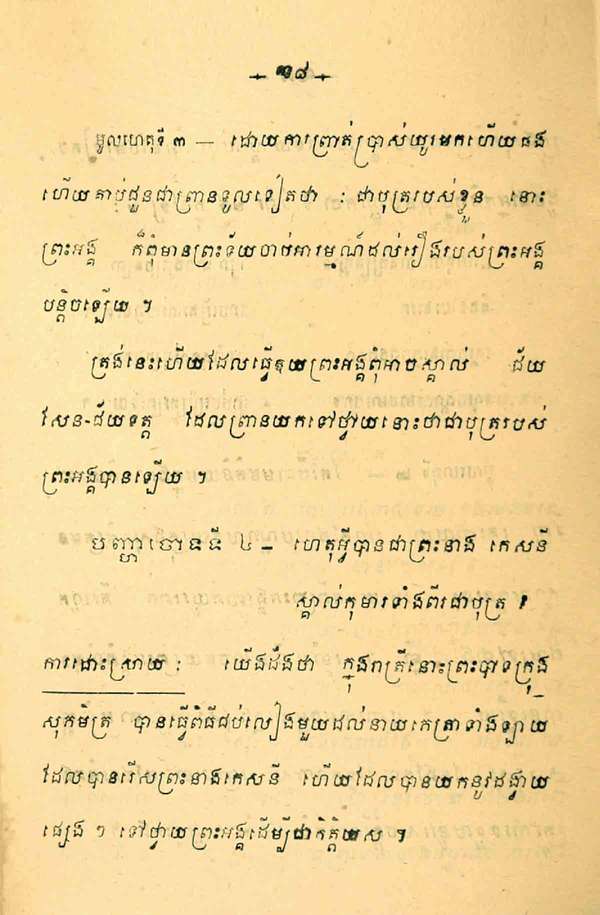 — ១៨ —
មូលហេតុទី ៣ — ដោយការព្រាត់ប្រាស់យូរមកហើយផង
ហើយគាប់ជួនជាព្រានទូលទៀតថា : ជាបុត្ររបស់ខ្លួន នោះ
ព្រះអង្គ ក៏ពុំមានព្រះទ័យចាប់អារម្មណ៍ដល់រឿងរបស់ព្រះអង្គ
បន្តិចឡើយ ។
ត្រង់នេះហើយដែលធ្វើឲ្យព្រះអង្គពុំអាចស្គាល់ ជ័យ
សែន-ជ័យទត្ត ដែលព្រានយកទៅថ្វាយនោះថាជាបុត្ររបស់
ព្រះអង្គបានឡើយ ។
បញ្ហាចោទទី ៤ – ហេតុអ្វីបានជាព្រះនាង កេសនី
ស្គាល់កុមារទាំងពីរជាបុត្រ ?
ការដោះស្រាយ : យើងដឹងថា ក្នុងរាត្រីនោះព្រះបាទក្រុង
សុភមិត្រ បានធ្វើពិធីជប់លៀងមួយដល់នាយគេត្រាទាំងឡាយ
ដែលបានរើសព្រះនាងកេសនី ហើយដែលបានយកនូវដង្វាយ
ផ្សេង ៗ ទៅថ្វាយព្រះអង្គដើម្បីជាកិត្តិយស ។